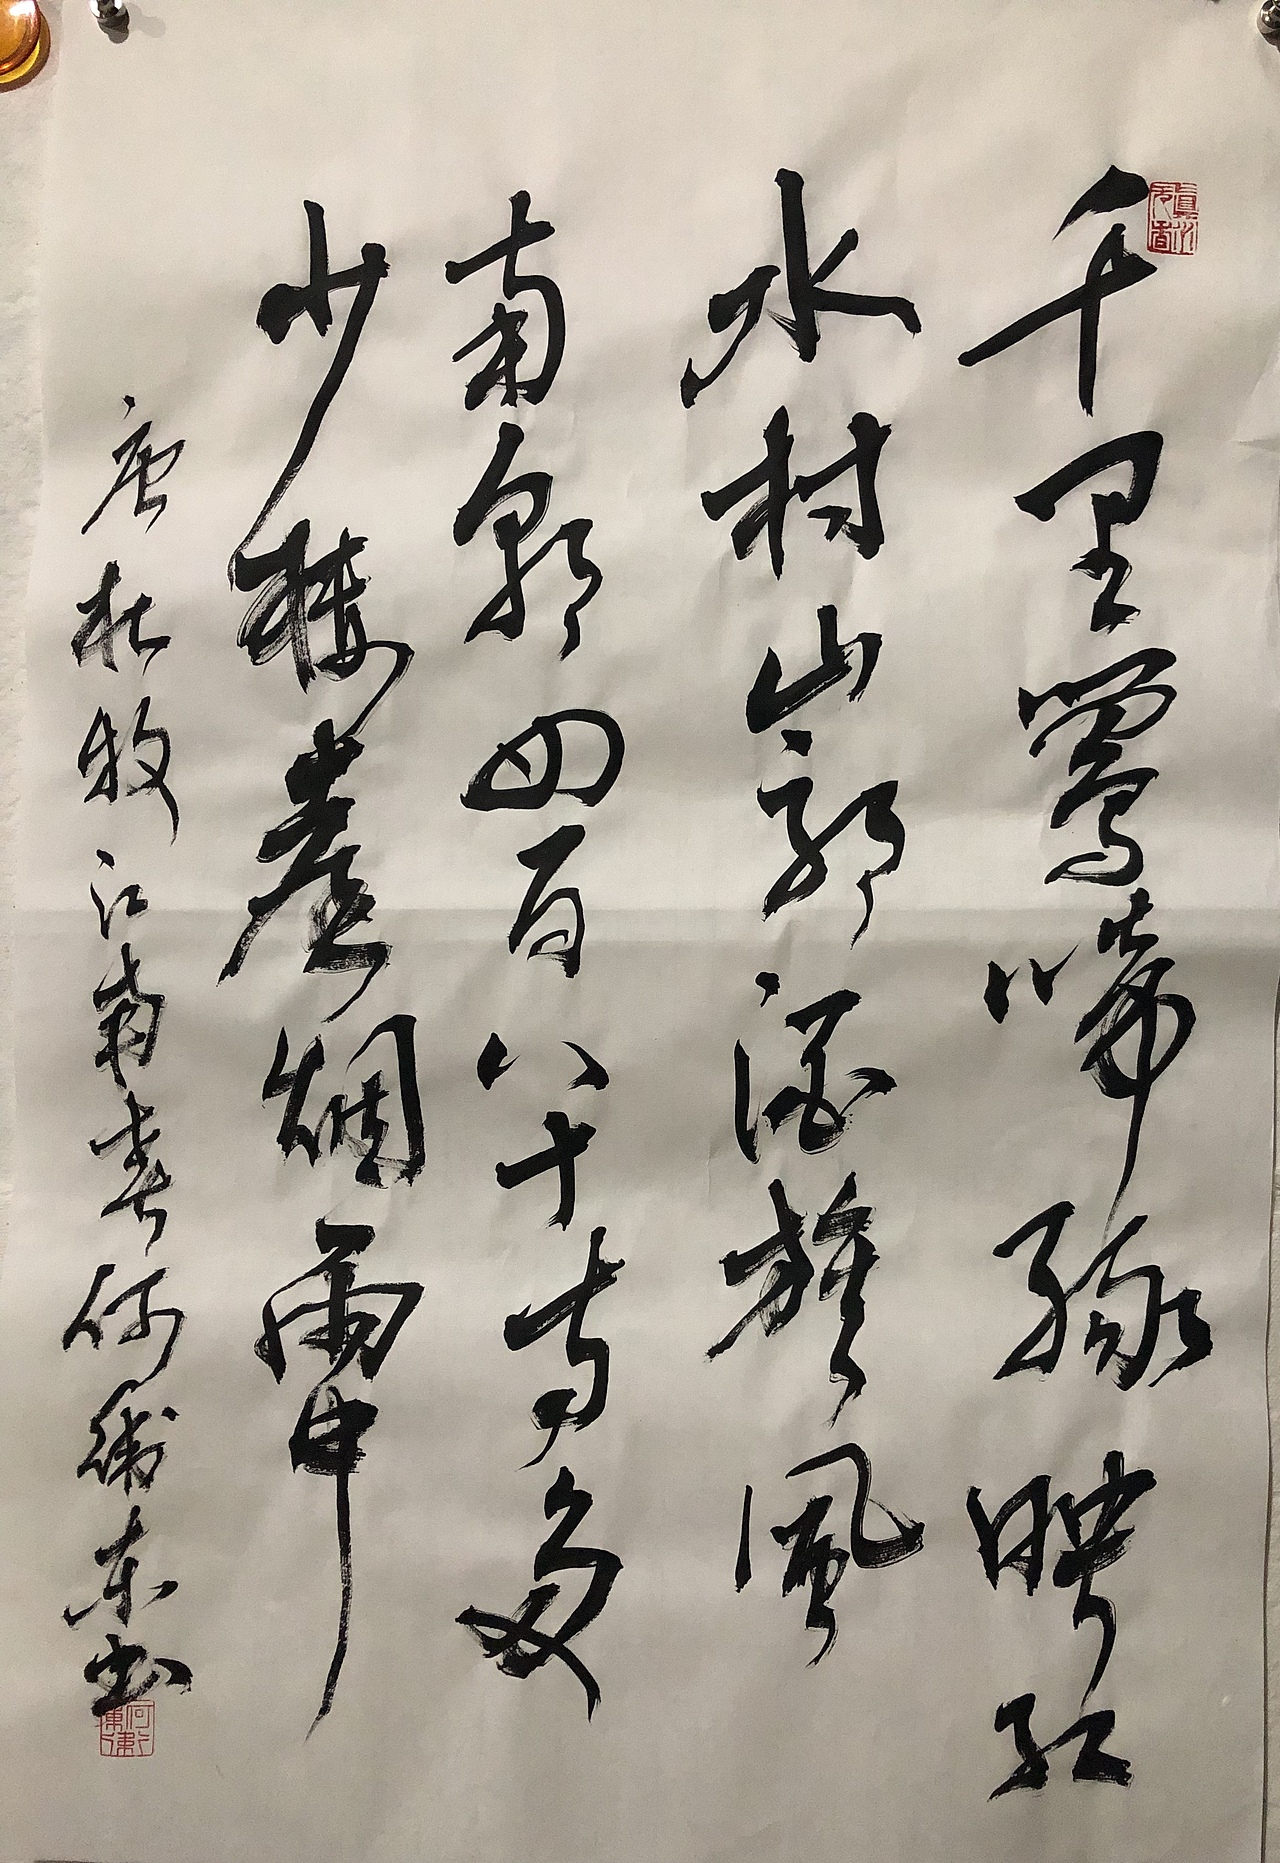 真水无香
千里鶯啼緑映紅
水村山郭酒旗風
南朝四百八十寺多
少樓臺烟雨中
唐杜牧江南春何衛東书